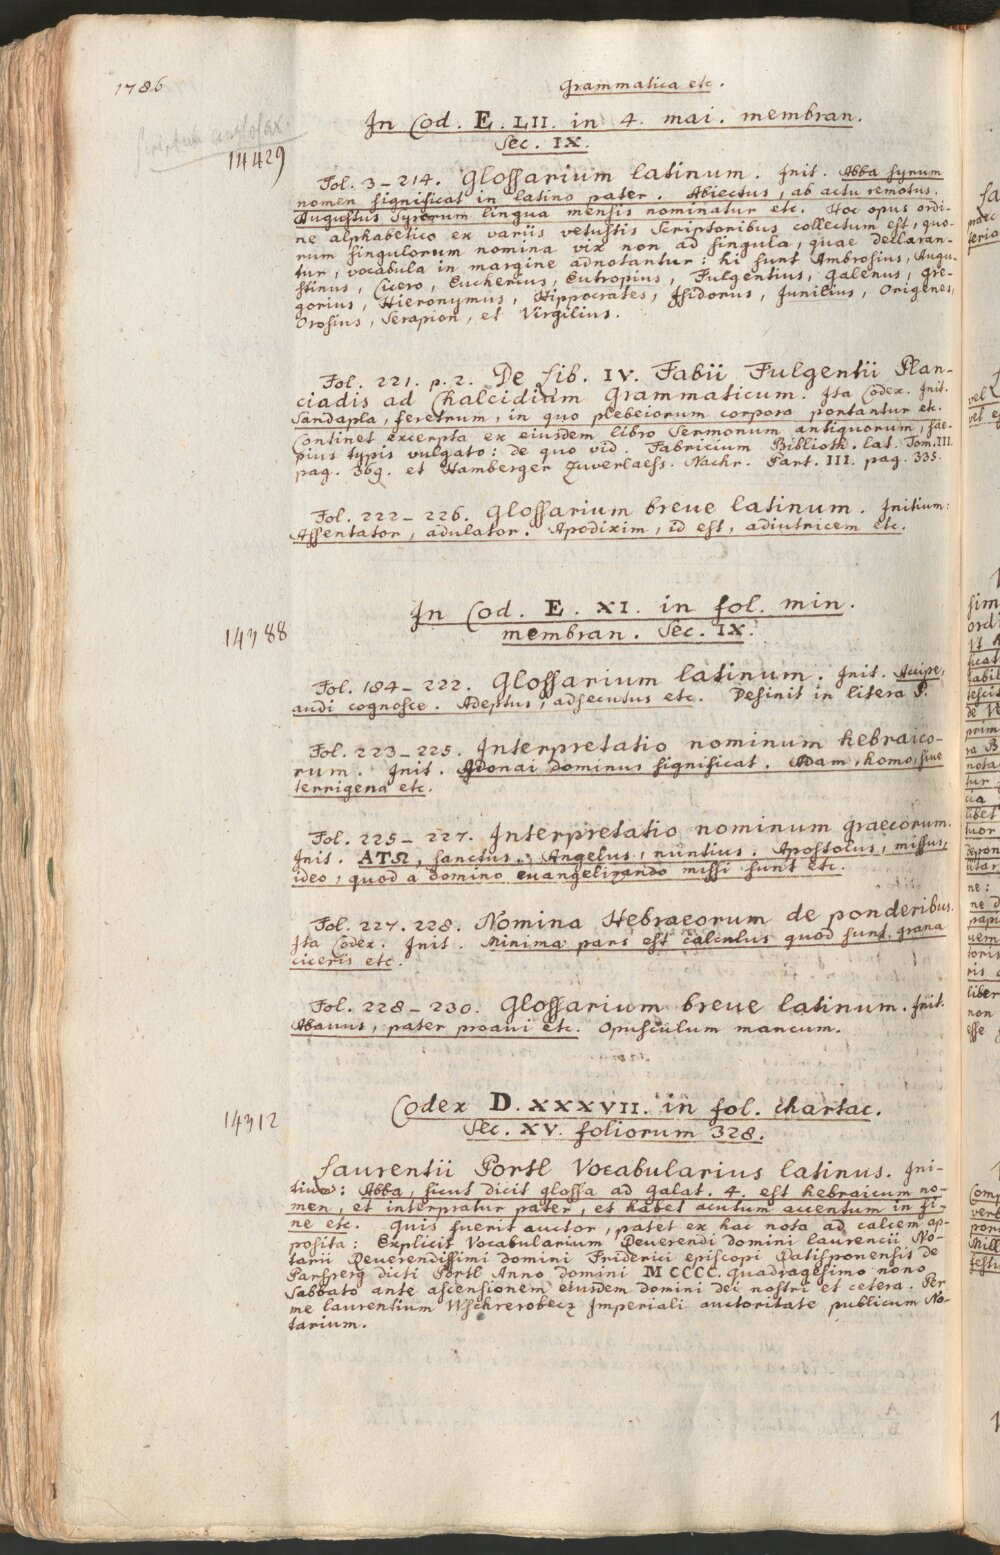 1786
Grammatica etc.
In Cod. E. LII. in 4. mai. membran.
Sec. IX.
14429
Fol. 3–214. Glossarium latinum. Init. Abba syrum
nomen significat in latino pater. Abiectus, ab actu remotus.
Augustus Syrorum lingua mensis nominatur etc. Hoc opus ordi-
ne alphabetico ex variis vetustis Scriptoribus collectum est, quo-
rum singulorum nomina vix non ad singula, quae declaran-
tur, vocabula in margine adnotantur: hi sunt Ambrosius, Augu-
stinus, Cicero, Eucherius, Eutropius, Fulgentius, Galenus, Gre-
gorius, Hieronymus, Hippocrates, Isidorus, Junilius, Origenes,
Orosius, Serapion, et Virgilius.
Fol. 221. p. 2. De Lib. IV. Fabii Fulgentii Plan-
ciadis ad Chalcidium Grammaticum. Ita Codex. Init.
Sandapla, feretrum, in quo plebeiorum corpora portantur etc.
Continet excerpta ex eiusdem libro Sermonum antiquorum, sae-
pius typis vulgato: de quo vid. Fabricium Biblioth. lat. Tom. III.
pag. 369. et Hamberger Zuverlaess. Nachr. Part. III. pag. 335.
Fol. 222–226. Glossarium breve latinum. Initium:
Assentator, adulator. Apodixim, id est, adiutricem etc.
In Cod. E. XI. in fol. min.
14388
membran. Sec. IX.
Fol. 184–222. Glossarium latinum. Init. Accipe,
audi cognosce. Adeptus, adsecutus etc. Desinit in litera P.
Fol. 223–225. Interpretatio nominum hebraico-
rum. Init. Adonai dominus significat. Adam, homo, sive
terrigena etc.
Fol. 225–227. Interpretatio nominum graecorum.
Init. ΑΤΩ, sanctus. Angelus, nuntius. Apostolus, missus,
ideo, quod a domino euangelizando missi sunt etc.
Fol. 227. 228. Nomina Hebraeorum de ponderibus.
Ita Codex. Init. Minima pars est calculus quod sunt grana
ciceris etc.
Fol. 228–230. Glossarium breve latinum. Init.
Abavus, pater proavi etc. Opusculum mancum.
14312
Codex D. XXXVII. in fol. chartac.
Sec. XV. foliorum 328.
Laurentii Portl Vocabularius latinus. Ini-
tium: Abba, sicut dicit glossa ad Galat. 4. est hebraicum no-
men, et interpratur pater, et habet acutum accentum in fi-
ne etc. Quis fuerit auctor, patet ex hac nota ad calcem ap-
posita: Explicit Vocabularium Reuerendi domini laurencii No-
tarii Reuerendissimi domini Friderici episcopi Ratisponensis de
Parsperg dicti Portl Anno domini M CCCC. quadragesimo nono
Sabbato ante ascensionem eiusdem domini dei nostri et cetera. Per
me laurentium Imperiali auctoritate publicum No-
tarium.